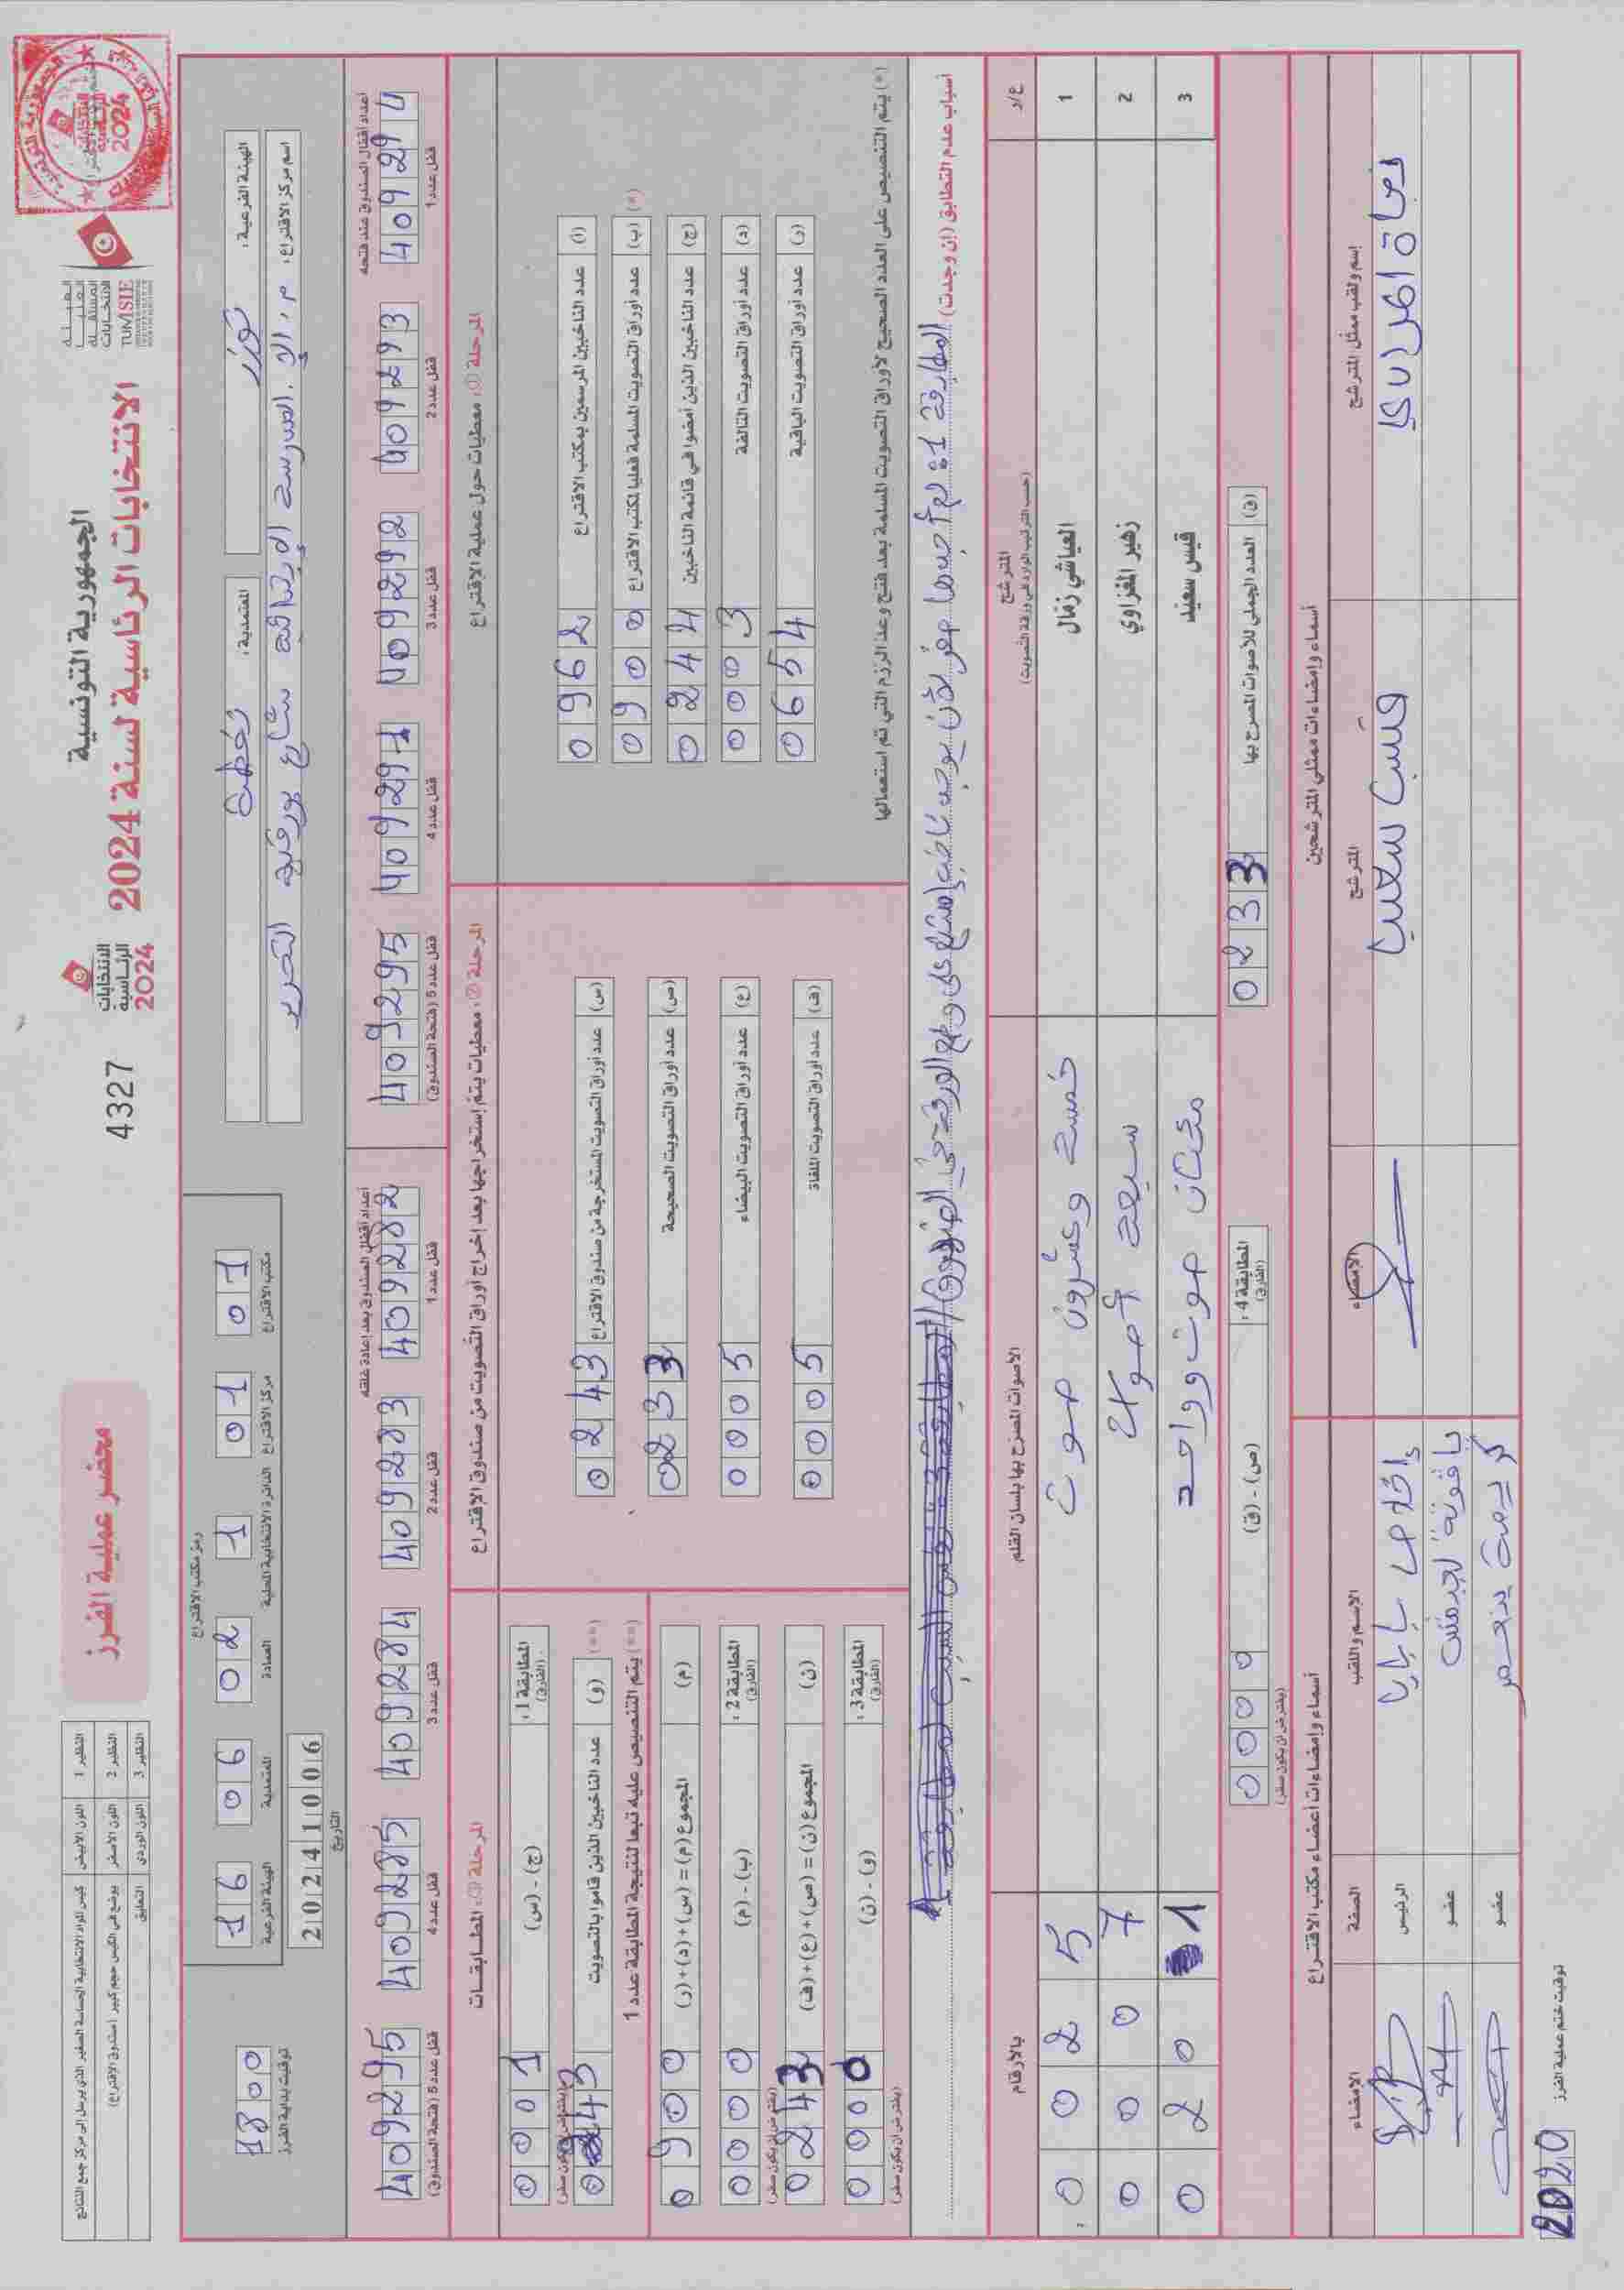 الجمهورية التونسية
الانتخابات الرئاسية لسنة 2024
الهيئة
العليا
المستقلة
للانتخابات
TUNISIE
الانتخابات
الرئاسية
2024
4327
محضر عملية الفرز
النظير 1 اللون الأبيض كيس المواد الانتخابية الحساسة الصغير الذي يرسل إلى مركز جمع النتائج
النظير 2 اللون الأصفر يوضع في الكيس حجم كبير (صندوق الاقتراع)
النظير 3 اللون الوردي التعليق
الهيئة الفرعية: توزر
المعتمدية: نفطة
اسم مركز الاقتراع: م. الإ. المدرسة الإبتدائية شارع بورقيبة التحرير
رمز مكتب الاقتراع
16 06 02 1 01 01
الهيئة الفرعية المعتمدية العمادة الدائرة الانتخابية المحلية مركز الاقتراع مكتب الاقتراع
20241006
التاريخ
1800
توقيت بداية الفرز
أعداد أقفال الصندوق عند فتحه
409294 409293 409292 409291 409295
قفل عدد 1 قفل عدد 2 قفل عدد 3 قفل عدد 4 قفل عدد 5 (فتحة الصندوق)
أعداد أقفال الصندوق بعد إعادة غلقه
409282 409283 409284 409285 409295
قفل عدد 1 قفل عدد 2 قفل عدد 3 قفل عدد 4 قفل عدد 5 (فتحة الصندوق)
المرحلة (1): معطيات حول عملية الاقتراع
(أ) عدد الناخبين المرسمين بمكتب الاقتراع 0962
(*) (ب) عدد أوراق التصويت المسلمة فعليا لمكتب الاقتراع 0900
(ج) عدد الناخبين الذين أمضوا في قائمة الناخبين 0244
(د) عدد أوراق التصويت التالفة 0003
(ر) عدد أوراق التصويت الباقية 0654
(*) يتم التنصيص على العدد الصحيح لأوراق التصويت المسلمة بعد فتح وعد الرزم التي تم استعمالها
المرحلة (2): معطيات يتم إستخراجها بعد إخراج أوراق التصويت من صندوق الاقتراع
(س) عدد أوراق التصويت المستخرجة من صندوق الاقتراع 0243
(ص) عدد أوراق التصويت الصحيحة 0233
(ع) عدد أوراق التصويت البيضاء 0005
(ف) عدد أوراق التصويت الملغاة 0005
المرحلة (3): المطابقات
المطابقة 1: (الفارق) (ج) - (س) 0001
(يفترض أن يكون صفر)
(**) (و) عدد الناخبين الذين قاموا بالتصويت 0243
(**) يتم التنصيص عليه تبعا لنتيجة المطابقة عدد 1
(م) المجموع (م) = (س) + (د) + (ر) 0900
المطابقة 2: (الفارق) (ب) - (م) 0000
(يفترض أن يكون صفر)
(ن) المجموع (ن) = (ص) + (ع) + (ف) 0243
المطابقة 3: (الفارق) (و) - (ن) 0000
(يفترض أن يكون صفر)
أسباب عدم التطابق (إن وجدت): المطابقة 1: لم أجدها صفر لأن يوجد ناخب إمتنع على وضع الورقة في الصندوق
ع/د المترشح الأصوات المصرح بها بلسان القلم بالأرقام
(حسب الترتيب الوارد في ورقة التصويت)
1 العياشي زمال خمسة وعشرون صوت 0025
2 زهير المغزاوي سبعة أصوات 0007
3 قيس سعيد مئتان صوت وواحد 0201
(ق) العدد الجملي للأصوات المصرح بها 0233
المطابقة 4: (الفارق) (ص) - (ق) 0000
(يفترض أن يكون صفر)
أسماء وإمضاءات ممثلي المترشحين
إسم ولقب ممثل المترشح المترشح الإمضاء
قيس سعيد
أسماء وإمضاءات أعضاء مكتب الاقتراع
الإسم واللقب الصفة الإمضاء
الرئيس
عضو
عضو
توقيت ختم عملية الفرز
2020